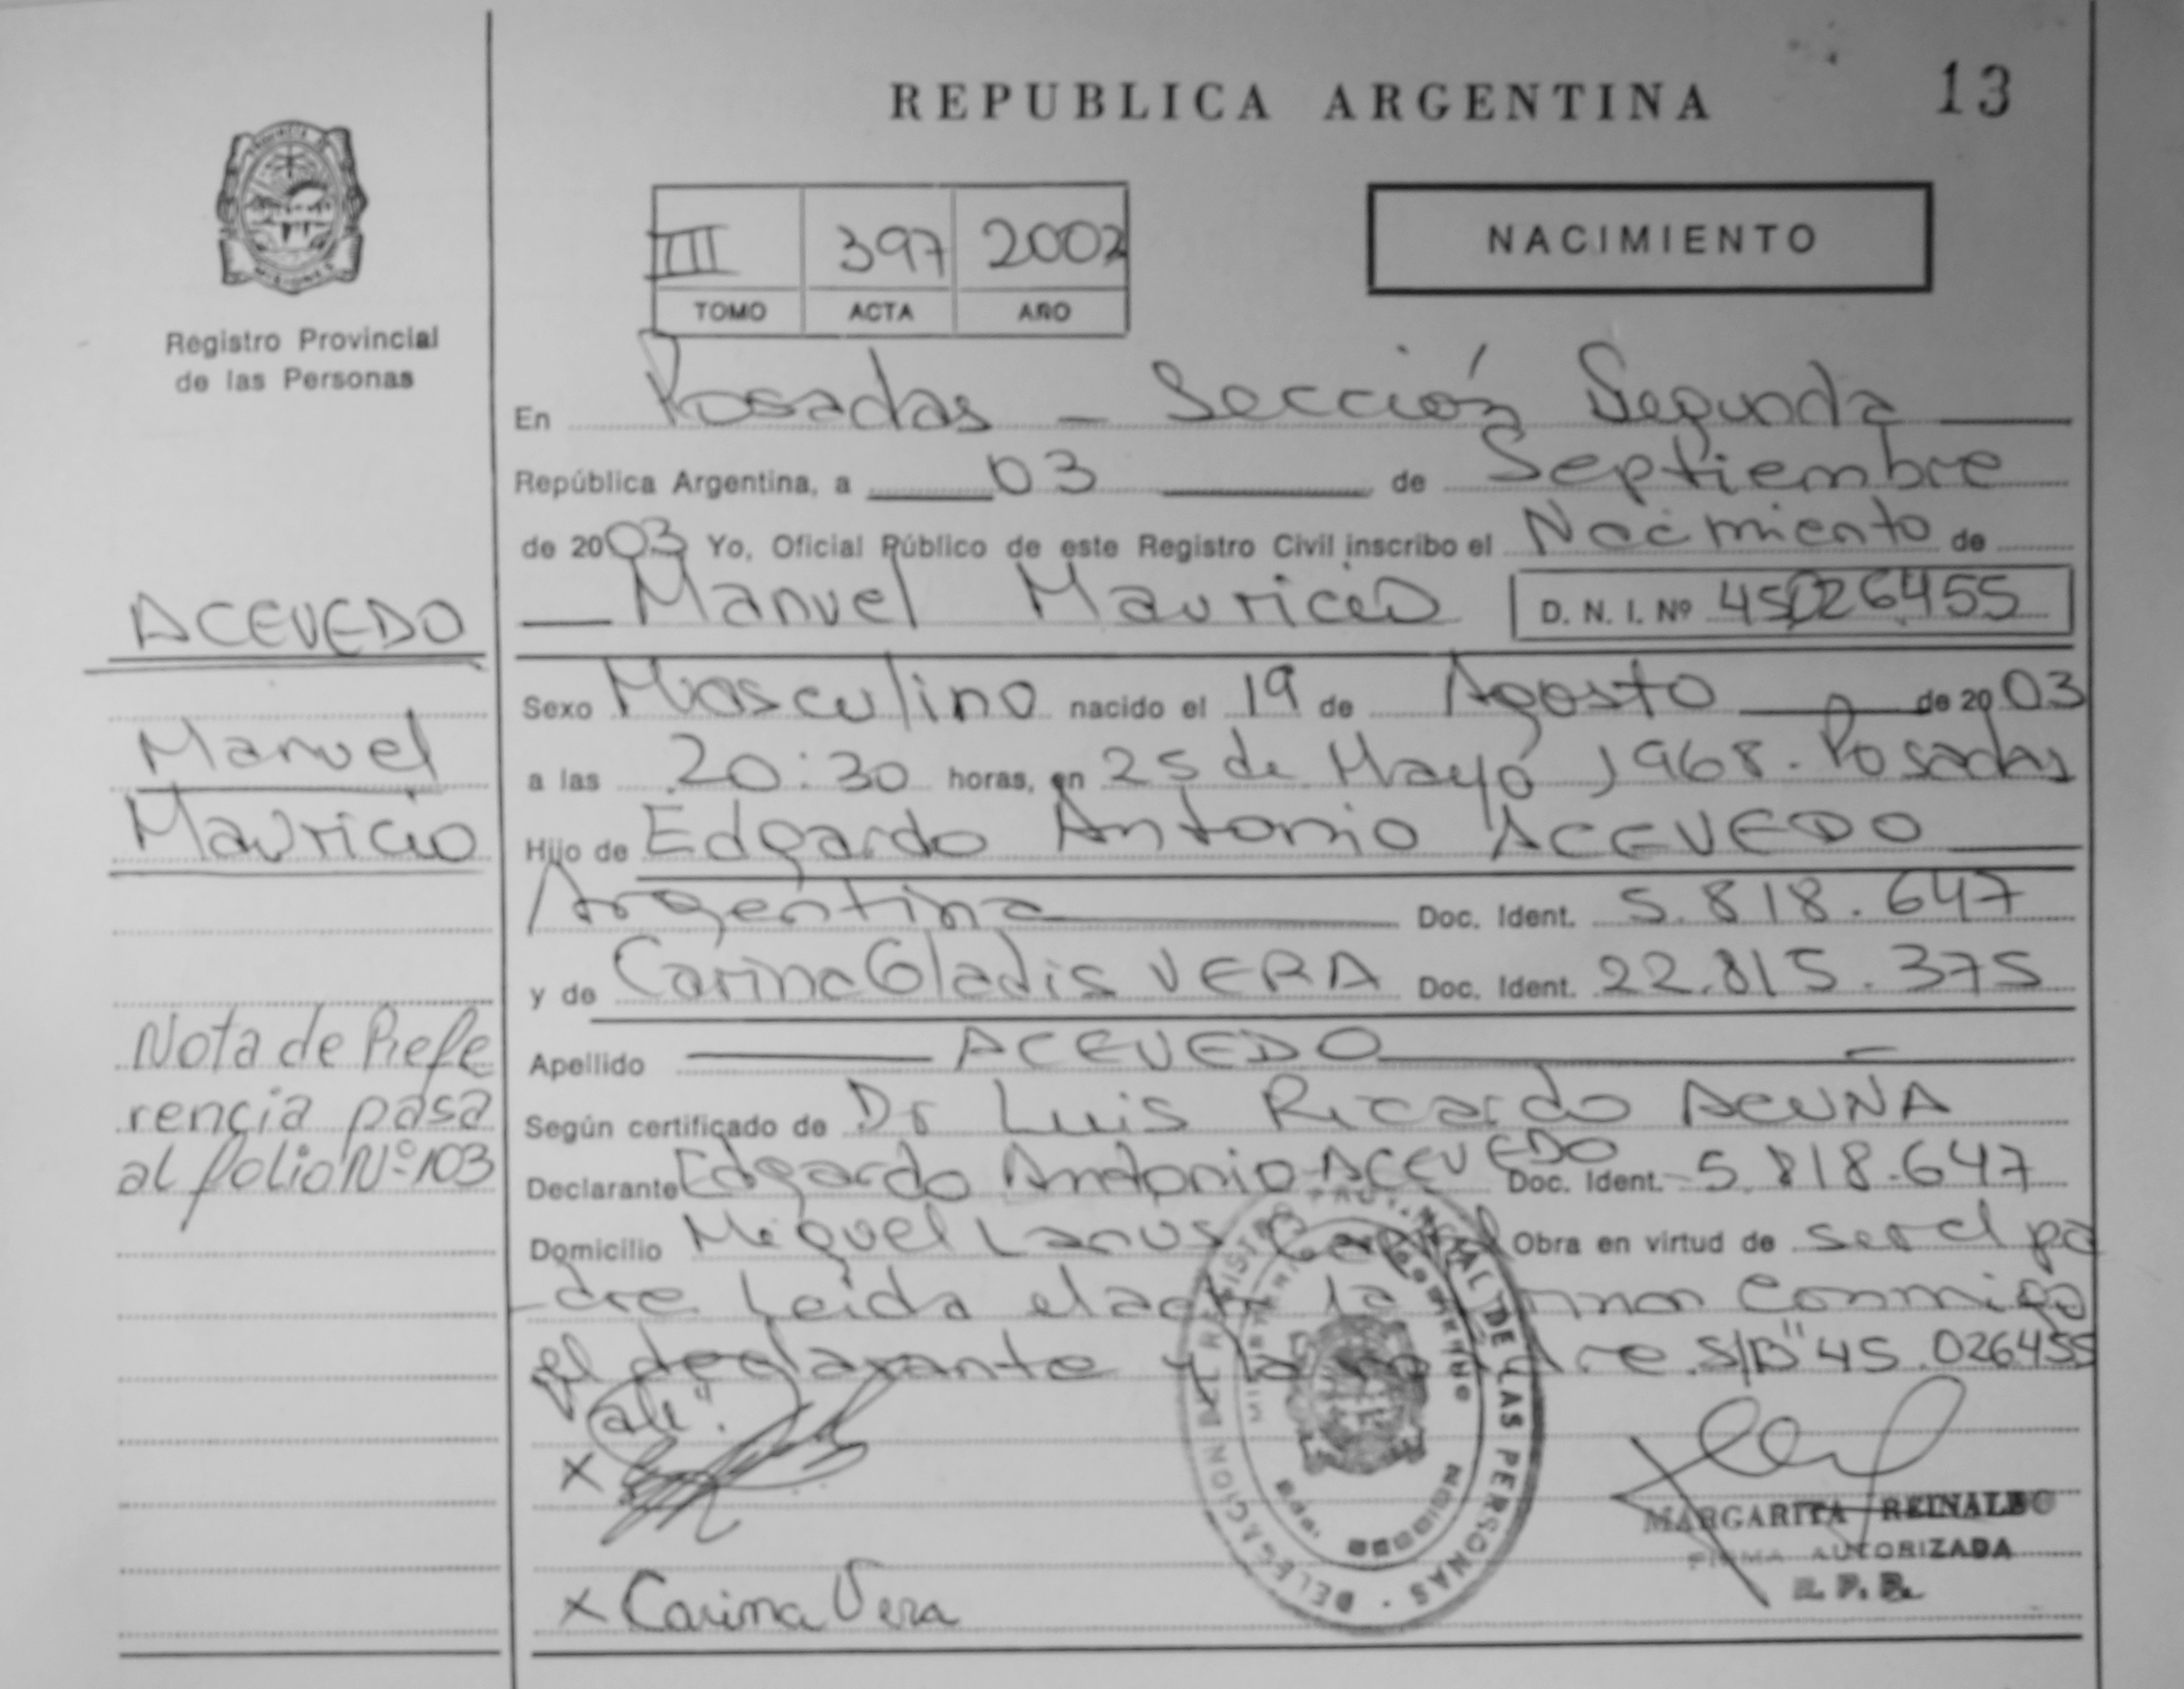 REPUBLICA ARGENTINA 13
Registro Provincial
de las Personas
III 397 2002
TOMO ACTA AÑO
NACIMIENTO
En Posadas - Sección Segunda
República Argentina, a 03 de Septiembre
de 2003 Yo, Oficial Público de este Registro Civil inscribo el Nacimiento de
Manuel Mauricio D. N. I. Nº 45026455
ACEVEDO
Manuel
Mauricio
Sexo Masculino nacido el 19 de Agosto de 2003
a las 20:30 horas, en 25 de Mayo 1968. Posadas
Hijo de Edgardo Antonio ACEVEDO
Argentina Doc. Ident. 5.818.647
y de Carina Gladis VERA Doc. Ident. 22.815.375
Apellido ACEVEDO
Según certificado de Dr Luis Ricardo ACUÑA
Declarante Edgardo Antonio ACEVEDO Doc. Ident. 5.818.647
Domicilio Miguel Lanus Obra en virtud de ser el pa
dre Leida el acta la conmigo
el declarante y la madre S/B" 45.026455
Vale".
Nota de Refe
rencia pasa
al folio Nº 103
X
X Carina Vera
DELEGACION DEL REGISTRO PROVINCIAL DE LAS PERSONAS
MARGARITA REINALDO
FIRMA AUTORIZADA
R. P. P.